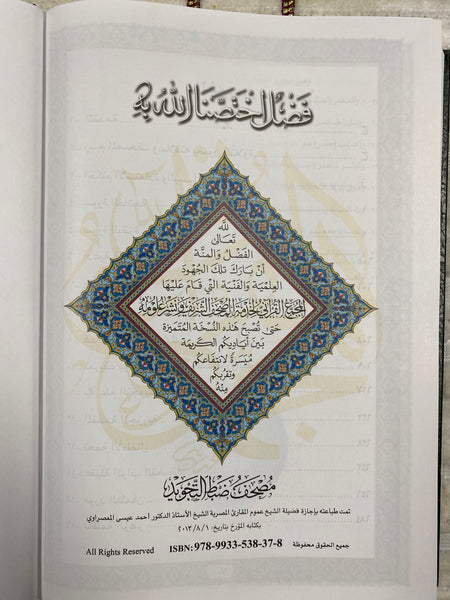 فَضْلٌ اخْتَصَّنَا اللهُ بِهِ
لِلَّهِ
تَعَالَى
الفَضْلُ وَالمِنَّةُ
أَنْ بَارَكَ تِلْكَ الجُهُودَ
العِلْمِيَّةَ وَالفَنِّيَّةَ الَّتِي قَامَ عَلَيْهَا
المجمع القرآني لخدمة المصحف الشريف ونشر علومه
حَتَّى تُصْبِحَ هَذِهِ النُّسْخَةُ المُتَمَيِّزَةُ
بَيْنَ أَيَادِيكُم الكَرِيمَةِ
مُيَسَّرَةً لِانْتِفَاعِكُم
وَتَقَرُّبِكُم
مِنْهُ
مصحف ضبط التجويد
تمت طباعته بإجازة فضيلة الشيخ عموم المقارئ المصرية الشيخ الأستاذ الدكتور أحمد عيسى المعصراوي
بكتابه المؤرخ بتاريخ: ٢٠١٣/٨/١
جميع الحقوق محفوظة ISBN: 978-9933-538-37-8 All Rights Reserved